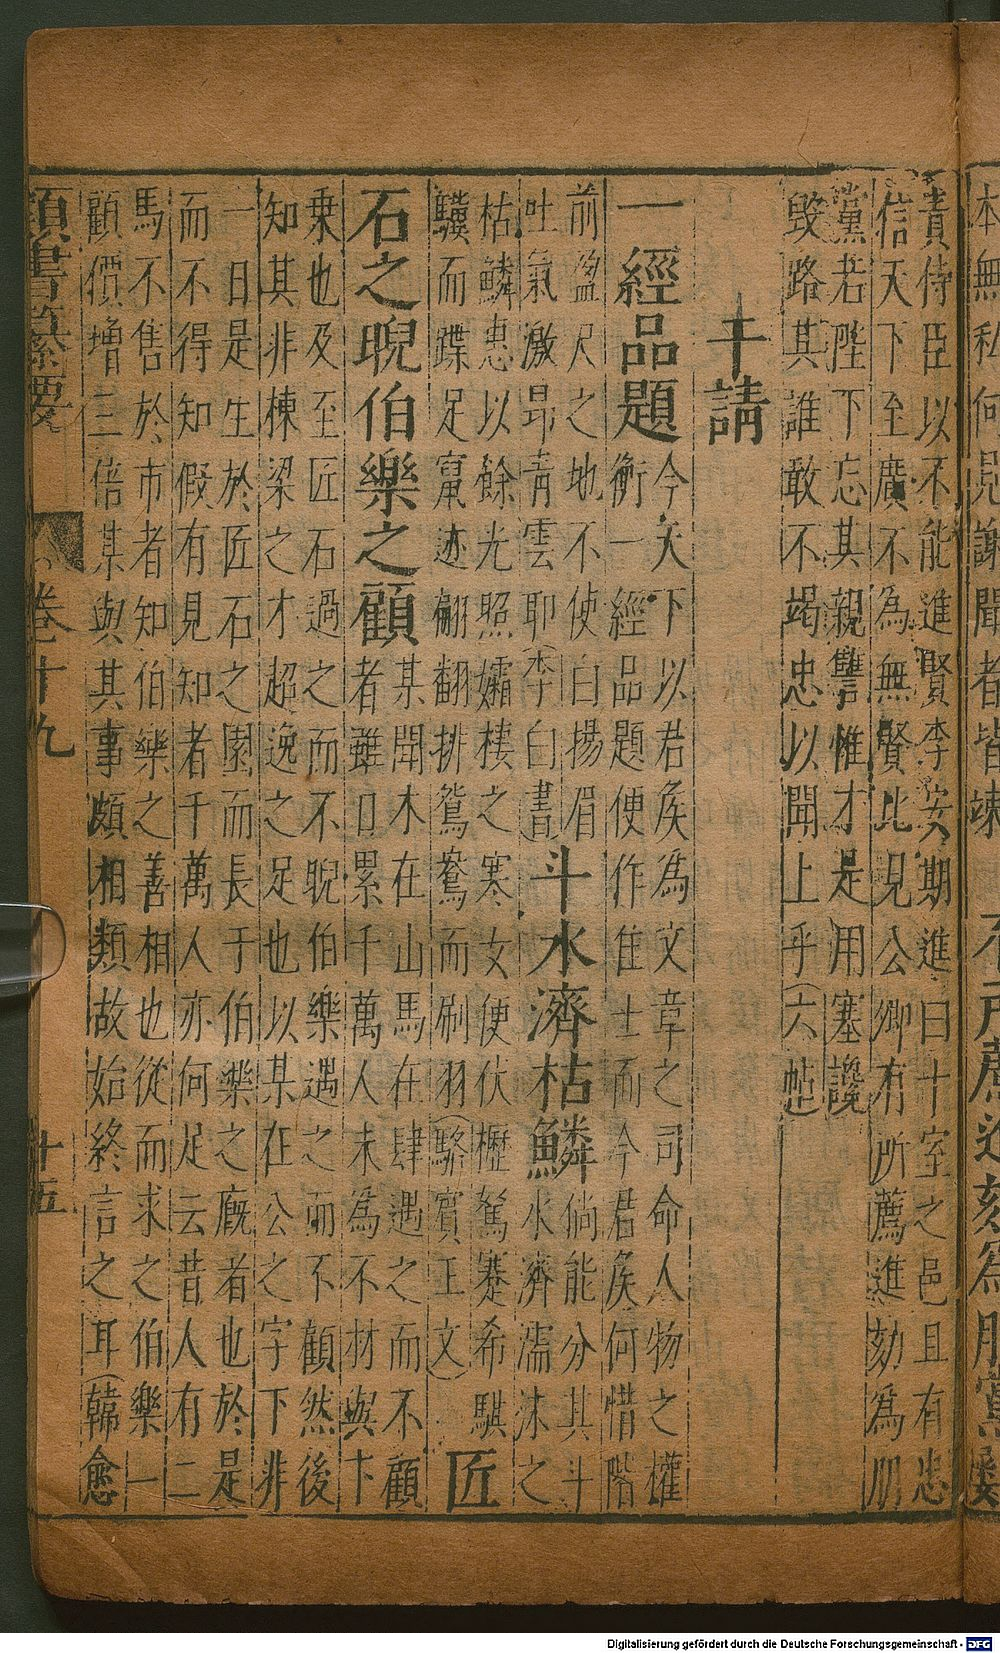 本無私何
謝聞者皆竦
薦進劾為朋黨
責侍臣以不能進賢李安期進曰十室之邑且有忠
信天下至廣不為無賢比見公卿有所薦進劾為朋
黨若陛下忘其親讐惟才是用塞讒
毀路其誰敢不竭忠以聞上乎(六帖
干請
一經品題
今天下以君侯為文章之司命人物之權
衡一經品題便作佳士而今君侯何惜階
前盈尺之地不使白揚眉
吐氣激昂青雲耶(李白書)
斗水濟枯鱗
倘能分其斗
水濟濡沫之
枯鱗惠以餘光照孀棲之寒女便伏櫪駑蹇希騏
驥而蹀足竄迹翩翻排鴛鴦而刷羽(駱賓王文)
匠
石之睨伯樂之顧
某聞木在山馬在肆遇之而不顧
者雖日累千萬人未為不材與下
乘也及至匠石過之而不睨伯樂遇之而不顧然後
知其非棟梁之才超逸之足也以某在公之宇下非
一日是生於匠石之園而長于伯樂之廐者也於是
而不得知假有見知者千萬人亦何足云昔人有二
馬不售於市者知伯樂之善相也從而求之伯樂一
顧價增三倍某與其事頗相類故始終言之耳(韓愈
類書纂要
卷十九
十五
Digitalisierung gefördert durch die Deutsche Forschungsgemeinschaft - DFG